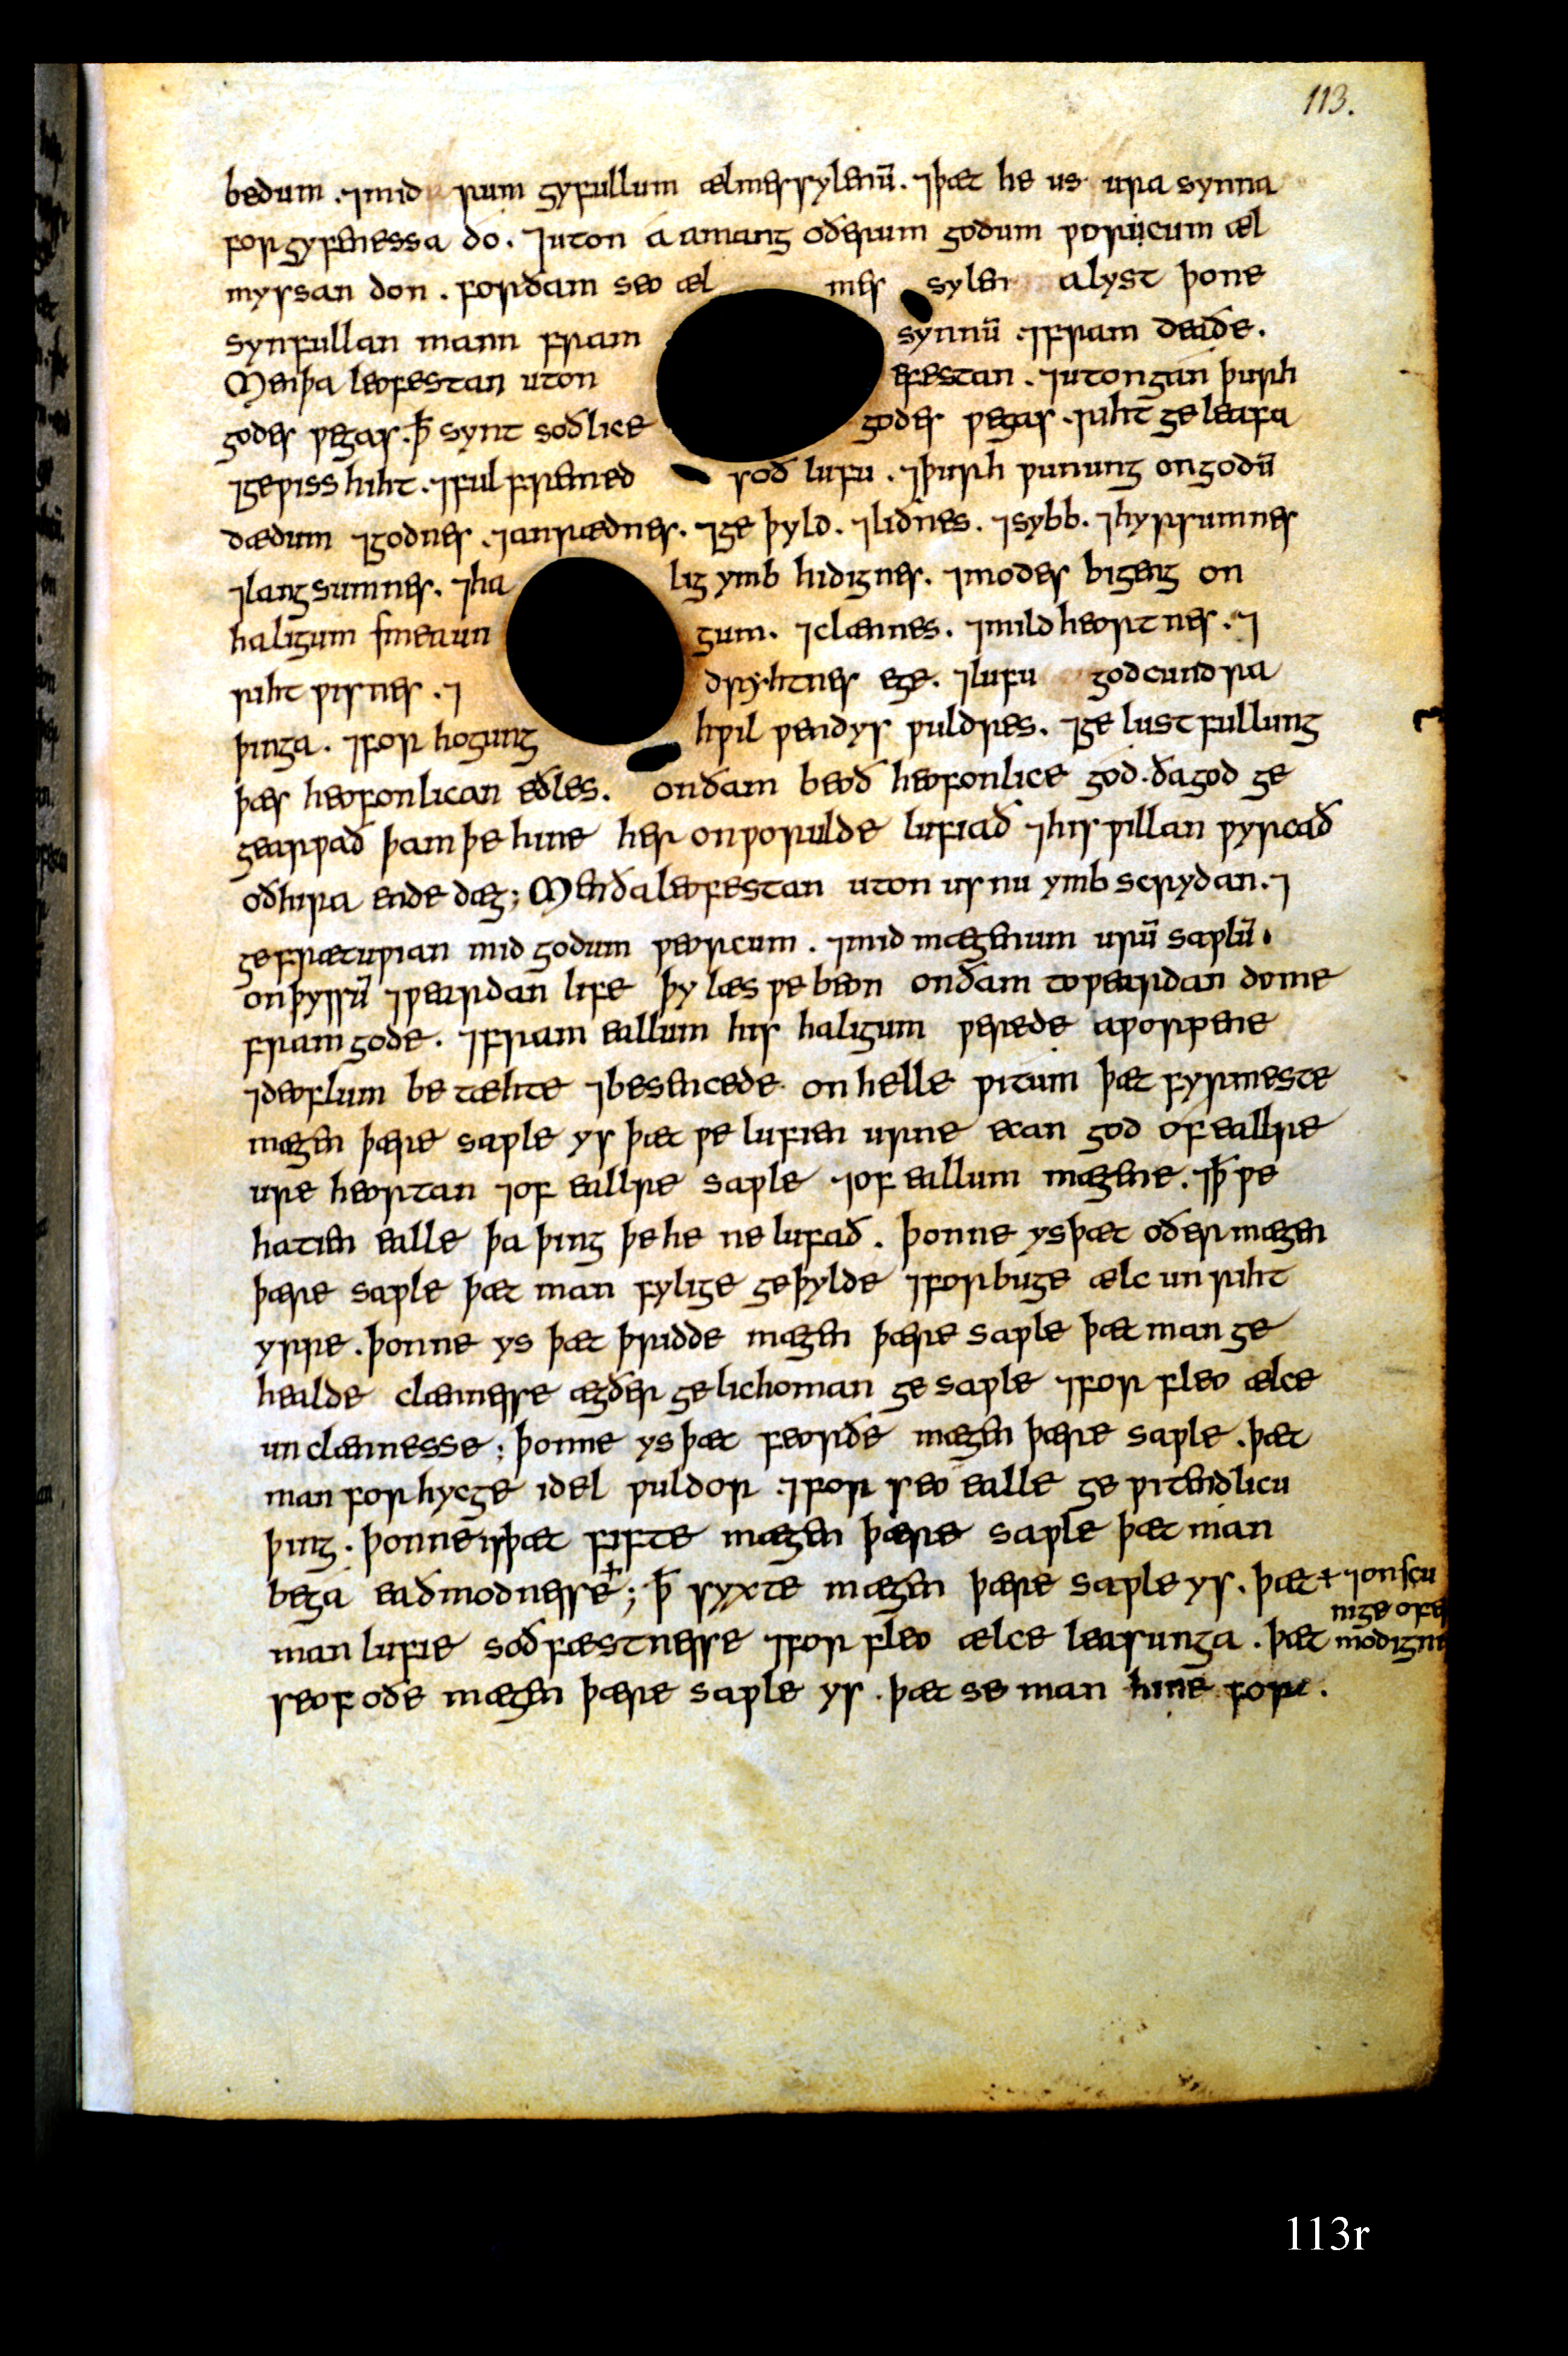 113.
bedum . ⁊mid rum gyfullum ælmessylenū. ⁊þæt he us ura synna
forgyfenessa do. ⁊uton á amang oðerum godum ƿorucum æl
myssan don . forðam seo æl mes sylen alyst þone
synfullan mann fram synnū .⁊fram deaðe.
Men þa leofestan uton efestan . ⁊uton gan þurh
godes ƿegas . ꝥ synt soðlice godes ƿegas . riht geleafa
⁊geƿiss hiht . ⁊fulfremed soð lufu . ⁊þurh ƿunung on godū
dædum ⁊godnes . ⁊anrædnes . ⁊geþyld . ⁊liðnes . ⁊sybb . ⁊hyrsumnes
⁊langsumnes . ⁊ha lig ymb hidignes . ⁊modes bigeng on
haligum smeaun gum . ⁊clænnes . ⁊mildheortnes . ⁊
riht ƿisnes . ⁊ dryhtnes ege . ⁊lufu godcundra
þinga . ⁊for hogung hƿil ƿendys ƿuldres . ⁊ge lustfullung
þæs heofonlican eðles . on ðam beoð heofonlice god . ða god ge
gearƿað þam þe hine her on ƿorulde lufiað ⁊his ƿillan ƿyrcað
oð hira ende dæg ; Men ða leofestan uton us nu ymb scrydan . ⁊
gefrætuƿian mid godum ƿeorcum . ⁊mid mægenum urū saƿlū .
on þyssū ⁊ƿeardan life þy læs ƿe beon on ðam toƿeardan dome
fram gode . ⁊fram eallum his haligum ƿerede aƿorpene
⁊deoflum be tæhte ⁊besencede on helle ƿitum þæt fyrmeste
mægen þære saƿle ys þæt ƿe lufien urne ecan god of eallre
ure heortan ⁊of eallre saƿle ⁊of eallum mægene . ⁊ꝥ ƿe
hatien ealle þa þing þe he ne lufað . þonne ys þæt oðer mægen
þære saƿle þæt man fylige geþylde ⁊forbuge ælc unriht
yrre . þonne ys þæt þridde mægen þære saƿle þæt man ge
healde clænnesse ægðer ge lichoman ge saƿle ⁊for fleo ælce
unclænnesse ; þonne ys þæt feorðe mægen þære saƿle . þæt
man forhycge idel ƿuldor . ⁊for seo ealle ge ƿitendlicu
þing . þonne is þæt fifte mægen þære saƿle þæt man
bega eaðmodnesse+ ; ꝥ syxte mægen þære saƿle ys . þæt
+ ⁊onscu
nige ofer
modigne
man lufie soðfæstnesse ⁊for fleo ælce leasunga . þæt
seofoðe mægen þære saƿle ys . þæt se man hine
113r